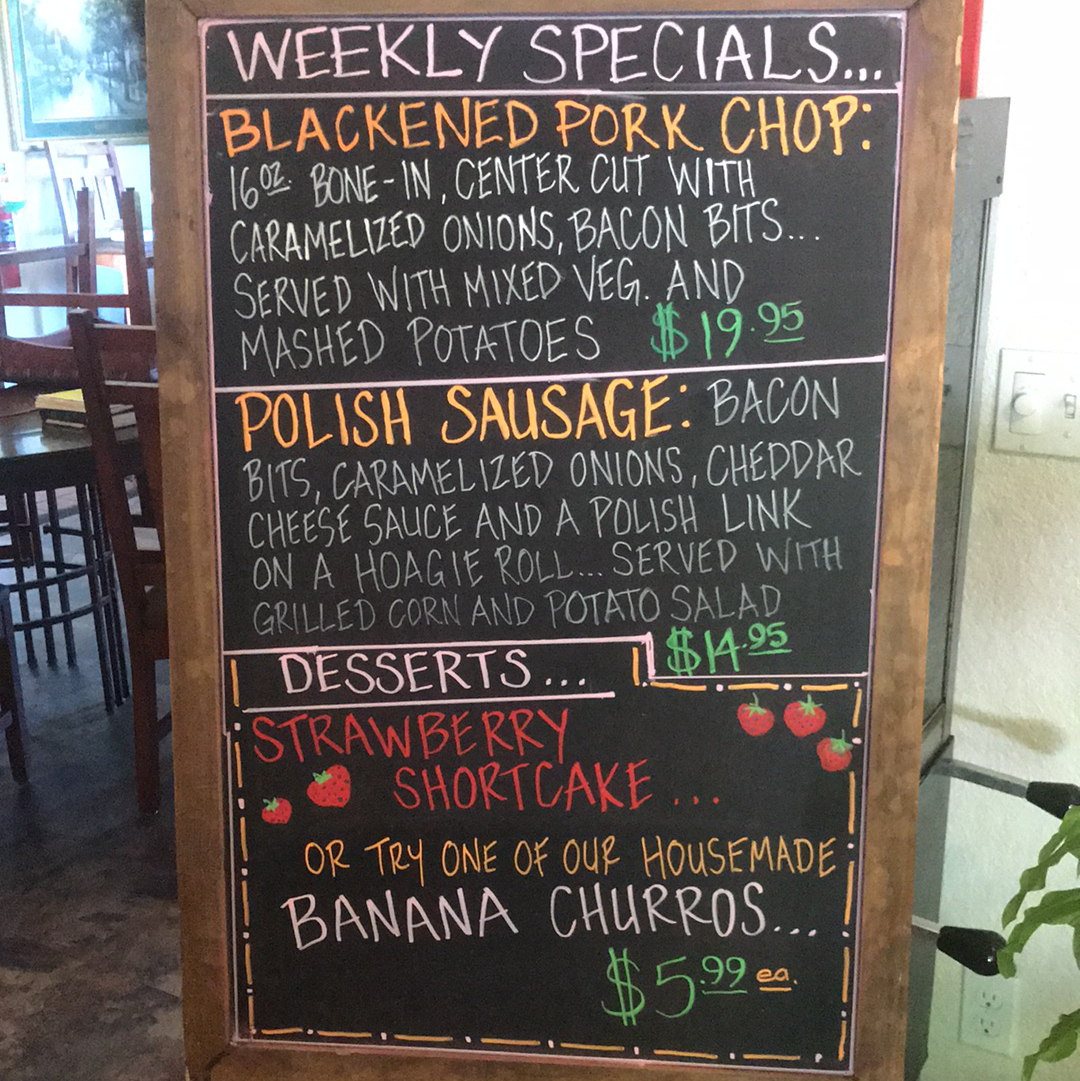 WEEKLY SPECIALS...
BLACKENED PORK CHOP:
16OZ. BONE-IN, CENTER CUT WITH
CARAMELIZED ONIONS, BACON BITS...
SERVED WITH MIXED VEG. AND
MASHED POTATOES $19.95
POLISH SAUSAGE: BACON
BITS, CARAMELIZED ONIONS, CHEDDAR
CHEESE SAUCE AND A POLISH LINK
ON A HOAGIE ROLL... SERVED WITH
GRILLED CORN AND POTATO SALAD
$14.95
DESSERTS...
STRAWBERRY
SHORTCAKE...
OR TRY ONE OF OUR HOUSEMADE
BANANA CHURROS...
$5.99 ea.